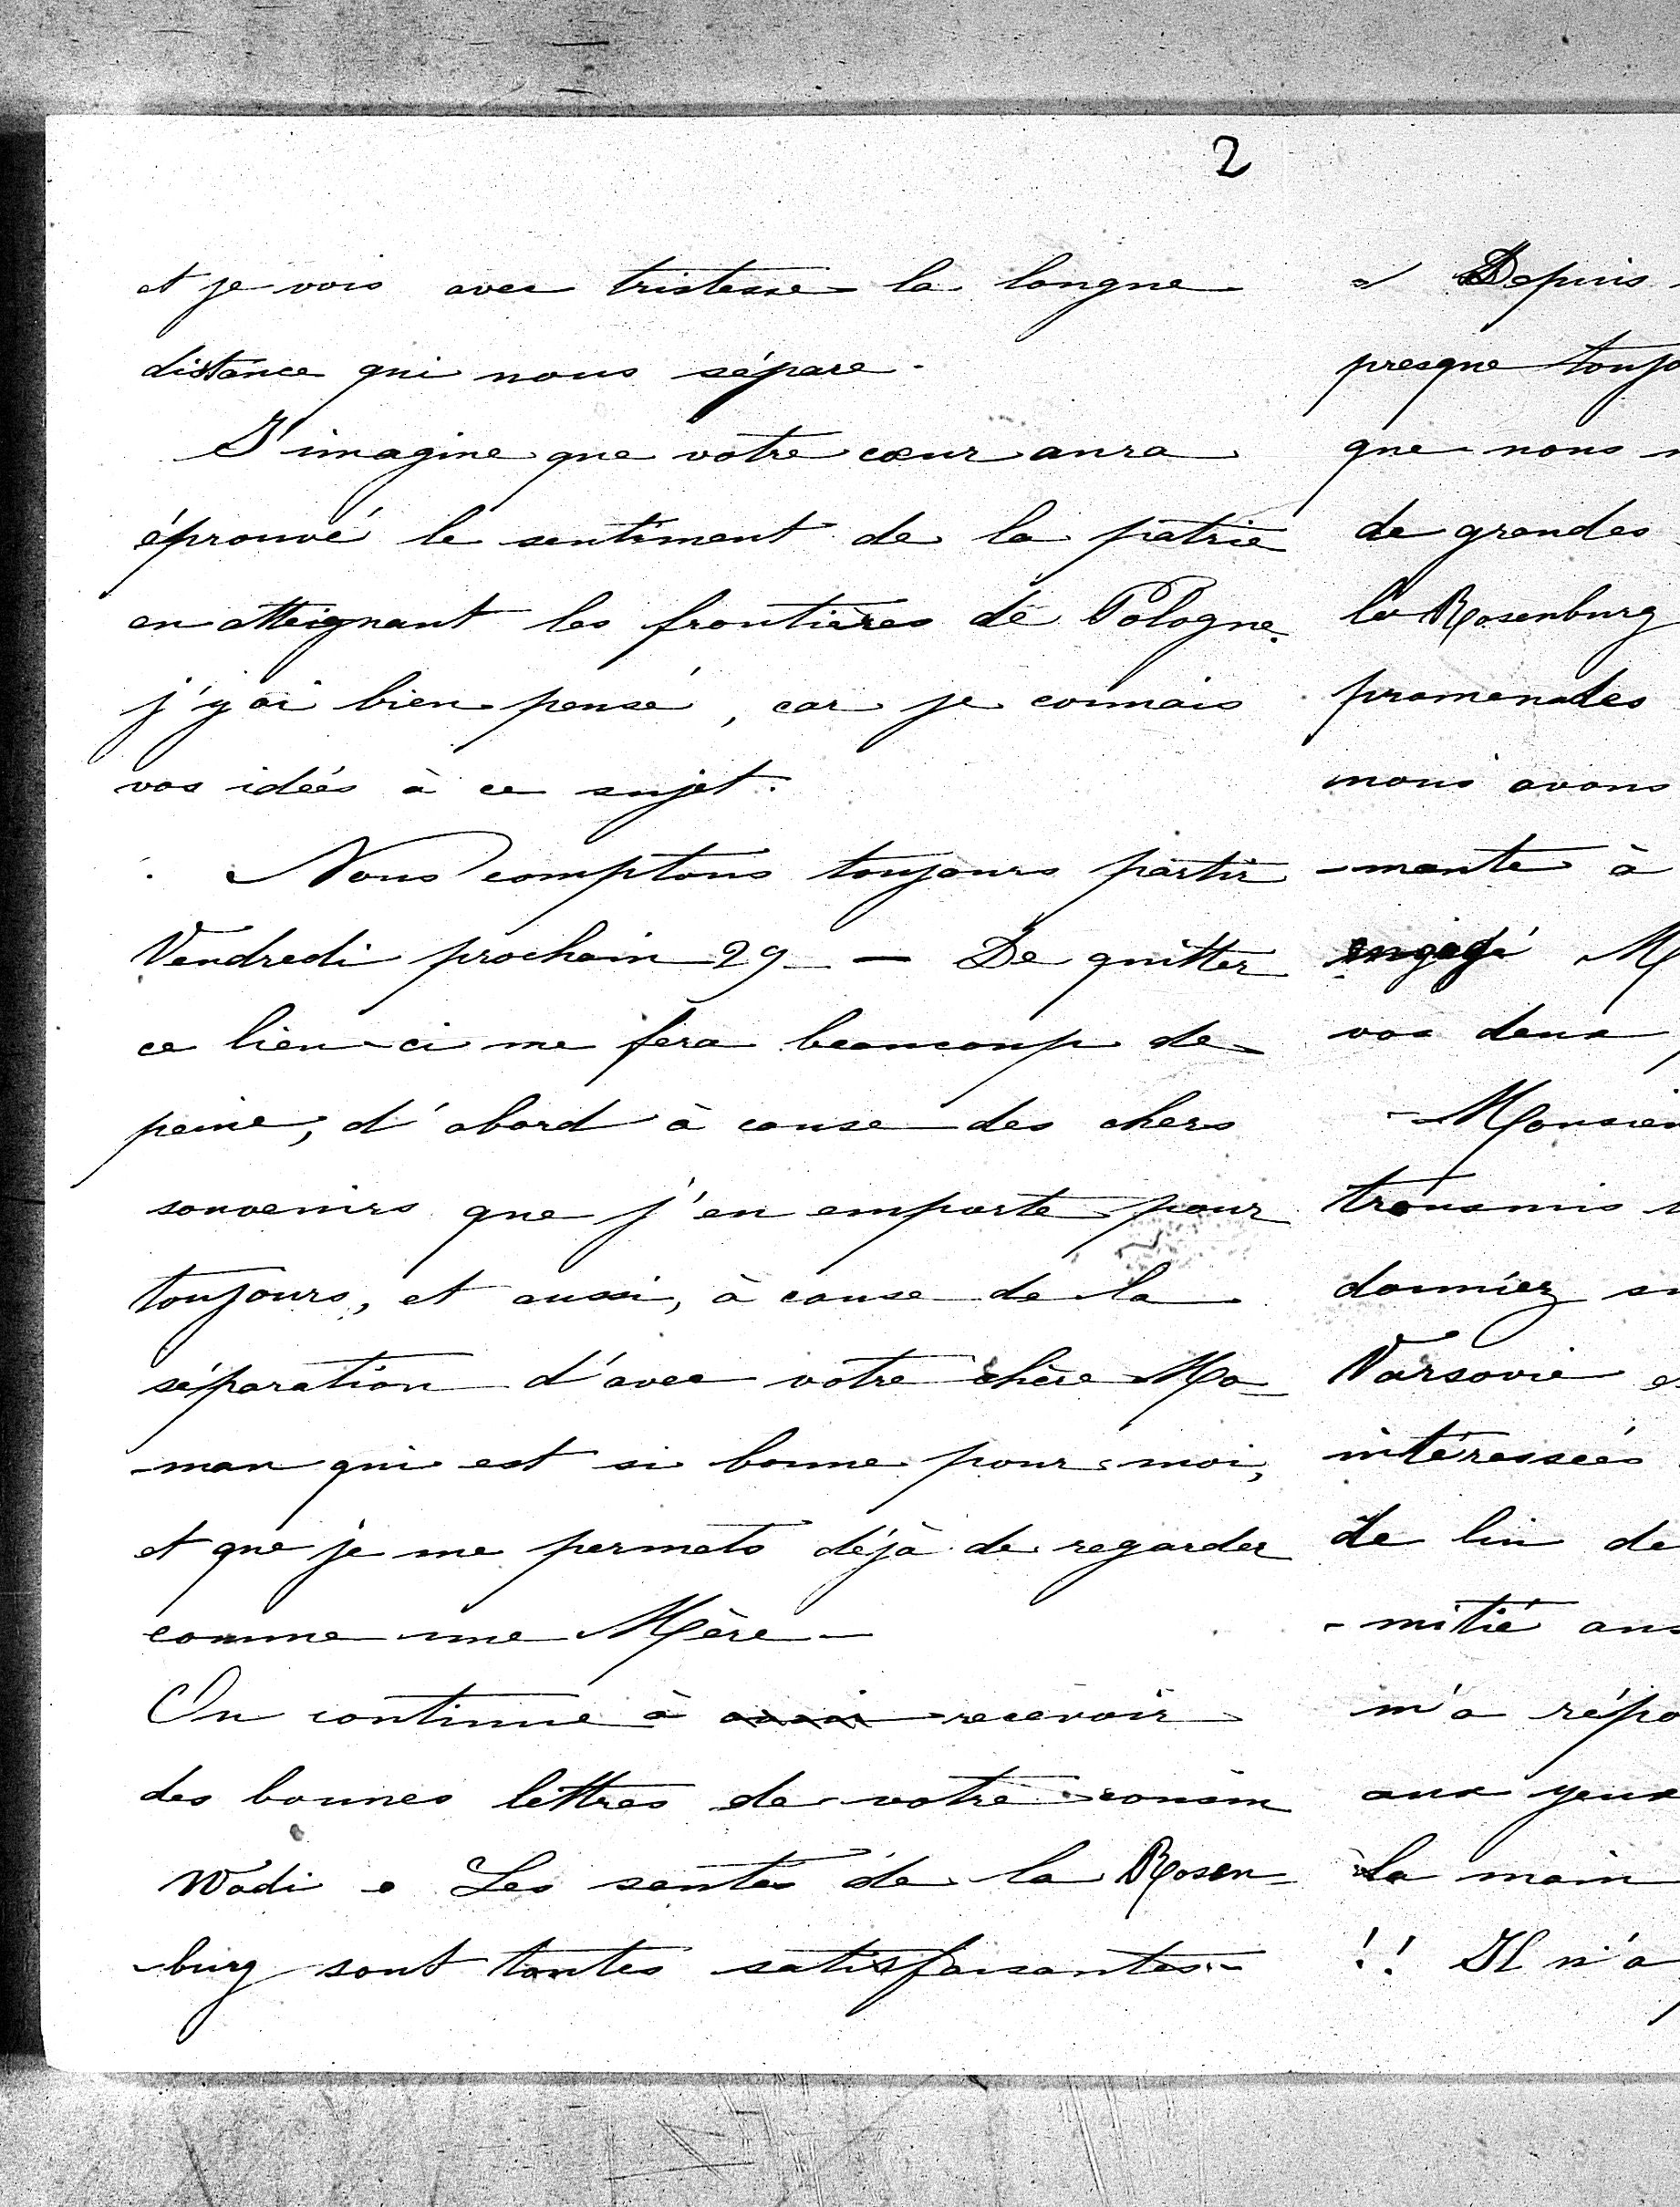 2
et je vois avec tristesse la longue
distance qui nous sépare.
J'imagine que votre cœur aura
éprouvé le sentiment de la patrie
en atteignant les frontières de Pologne.
j'y ai bien pensé, car je connais
vos idées à ce sujet.
Nous comptons toujours partir
Vendredi prochain 29 — De quitter
ce lieu-ci me fera beaucoup de
peine, d'abord à cause des chers
souvenirs que j'en emporte pour
toujours, et aussi, à cause de la
séparation d'avec votre chère Ma-
-man qui est si bonne pour moi,
et que je me permets déjà de regarder
comme une Mère —
On continue à recevoir
des bonnes lettres de votre cousin
Wadi. Les santés de la Rosen-
-burg sont toutes satisfaisantes. -
Depuis
presque toujo
que nous
de grandes
la Rosenburg
promenades
nous avons
-mante à
engagé M
vos deux
- Monsieu
transmis
donniez su
Varsovie e
intéressées
de lin de
-mitié aus
m'a répo
aux yeux
la main
!! Il n'a